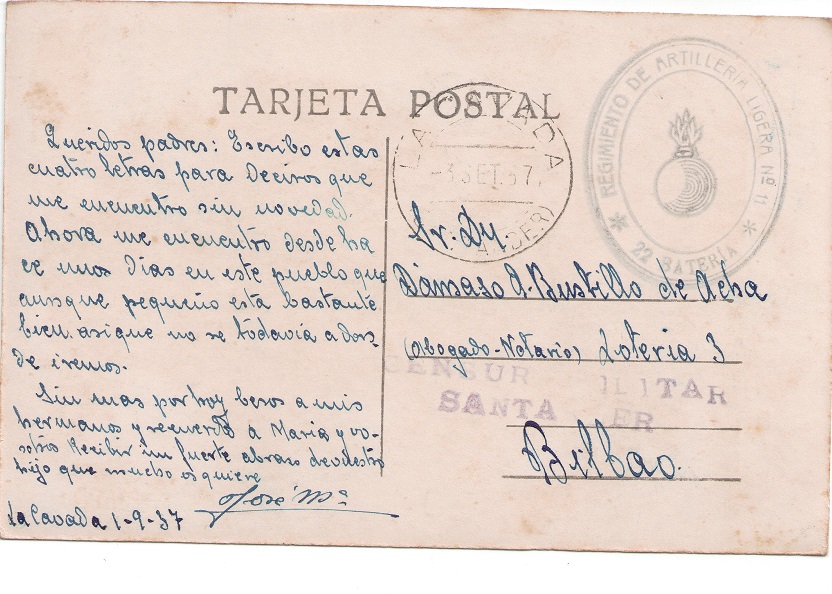 TARJETA POSTAL
Queridos padres: Escribo estas
cuatro letras para Deciros que
me encuentro sin novedad.
Ahora me encuentro desde ha
ce unos Dias en este pueblo que
aunque pequeño esta bastante
bien. asique no se todavía a don-
de iremos.
Sin mas por hoy besos a mis
hermanos y recuerdos a Maria y vo-
sotros Recibir un fuerte abrazo de vuestro
hijo que mucho os quiere
José Mª
La Cavada 1-9-37
LA CAVADA
-3 SET.37.
(SANTANDER)
REGIMIENTO DE ARTILLERIA LIGERA Nº 11
* 22 BATERÍA *
Sr. Dn.
Dámaso A. Bustillo de Acha
(Abogado-Notario) Loteria 3
CENSURA MILITAR
SANTANDER
Bilbao.